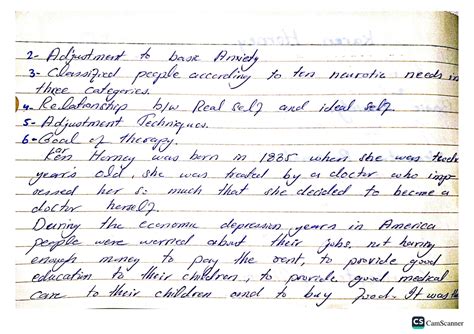 2- Adjustment to basic Anxiety
3- Classified people according to ten neurotic needs in
three categories.
4- Relationship b/w Real Self and ideal self.
5- Adjustment Techniques.
6- Goal of therapy.
Karen Horney was born in 1885 when she was
year's old, she was treated by a doctor who imp-
ressed her so much that she decided to become a
doctor herself.
During the economic depression years in America
people were worried about their jobs, not having
enough money to pay the rent, to provide good
education to their children, to provide good medical
care to their children and to buy food. It was
CS CamScanner